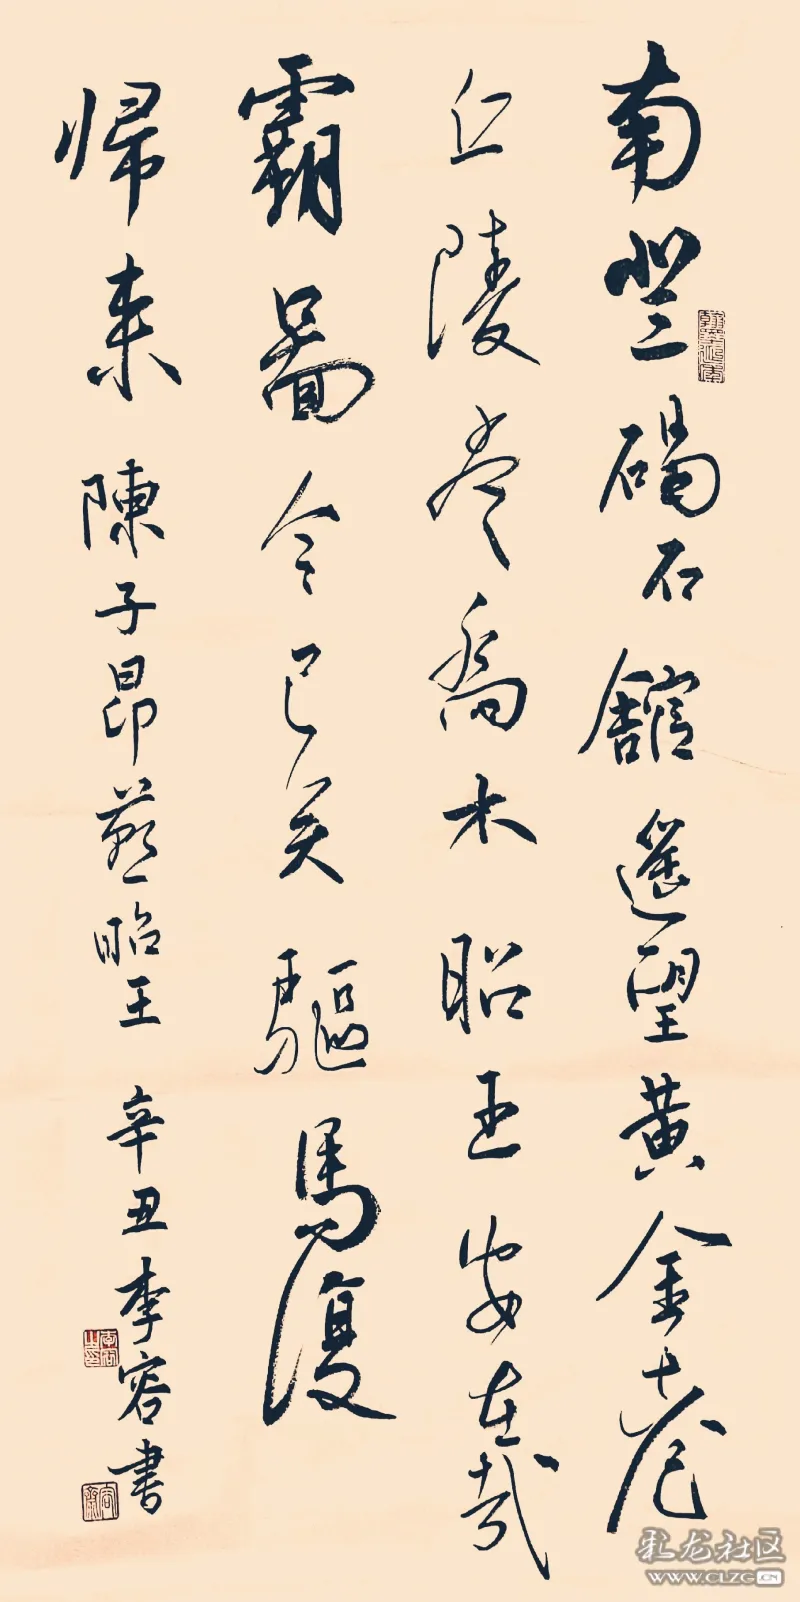 南登碣石舘遙望黄金臺
丘陵尽喬木昭王安在哉
霸圖今已矣驅馬復
帰来 陳子昂燕昭王 辛丑李容書
彩龙社区
WWW.CLZG.CN